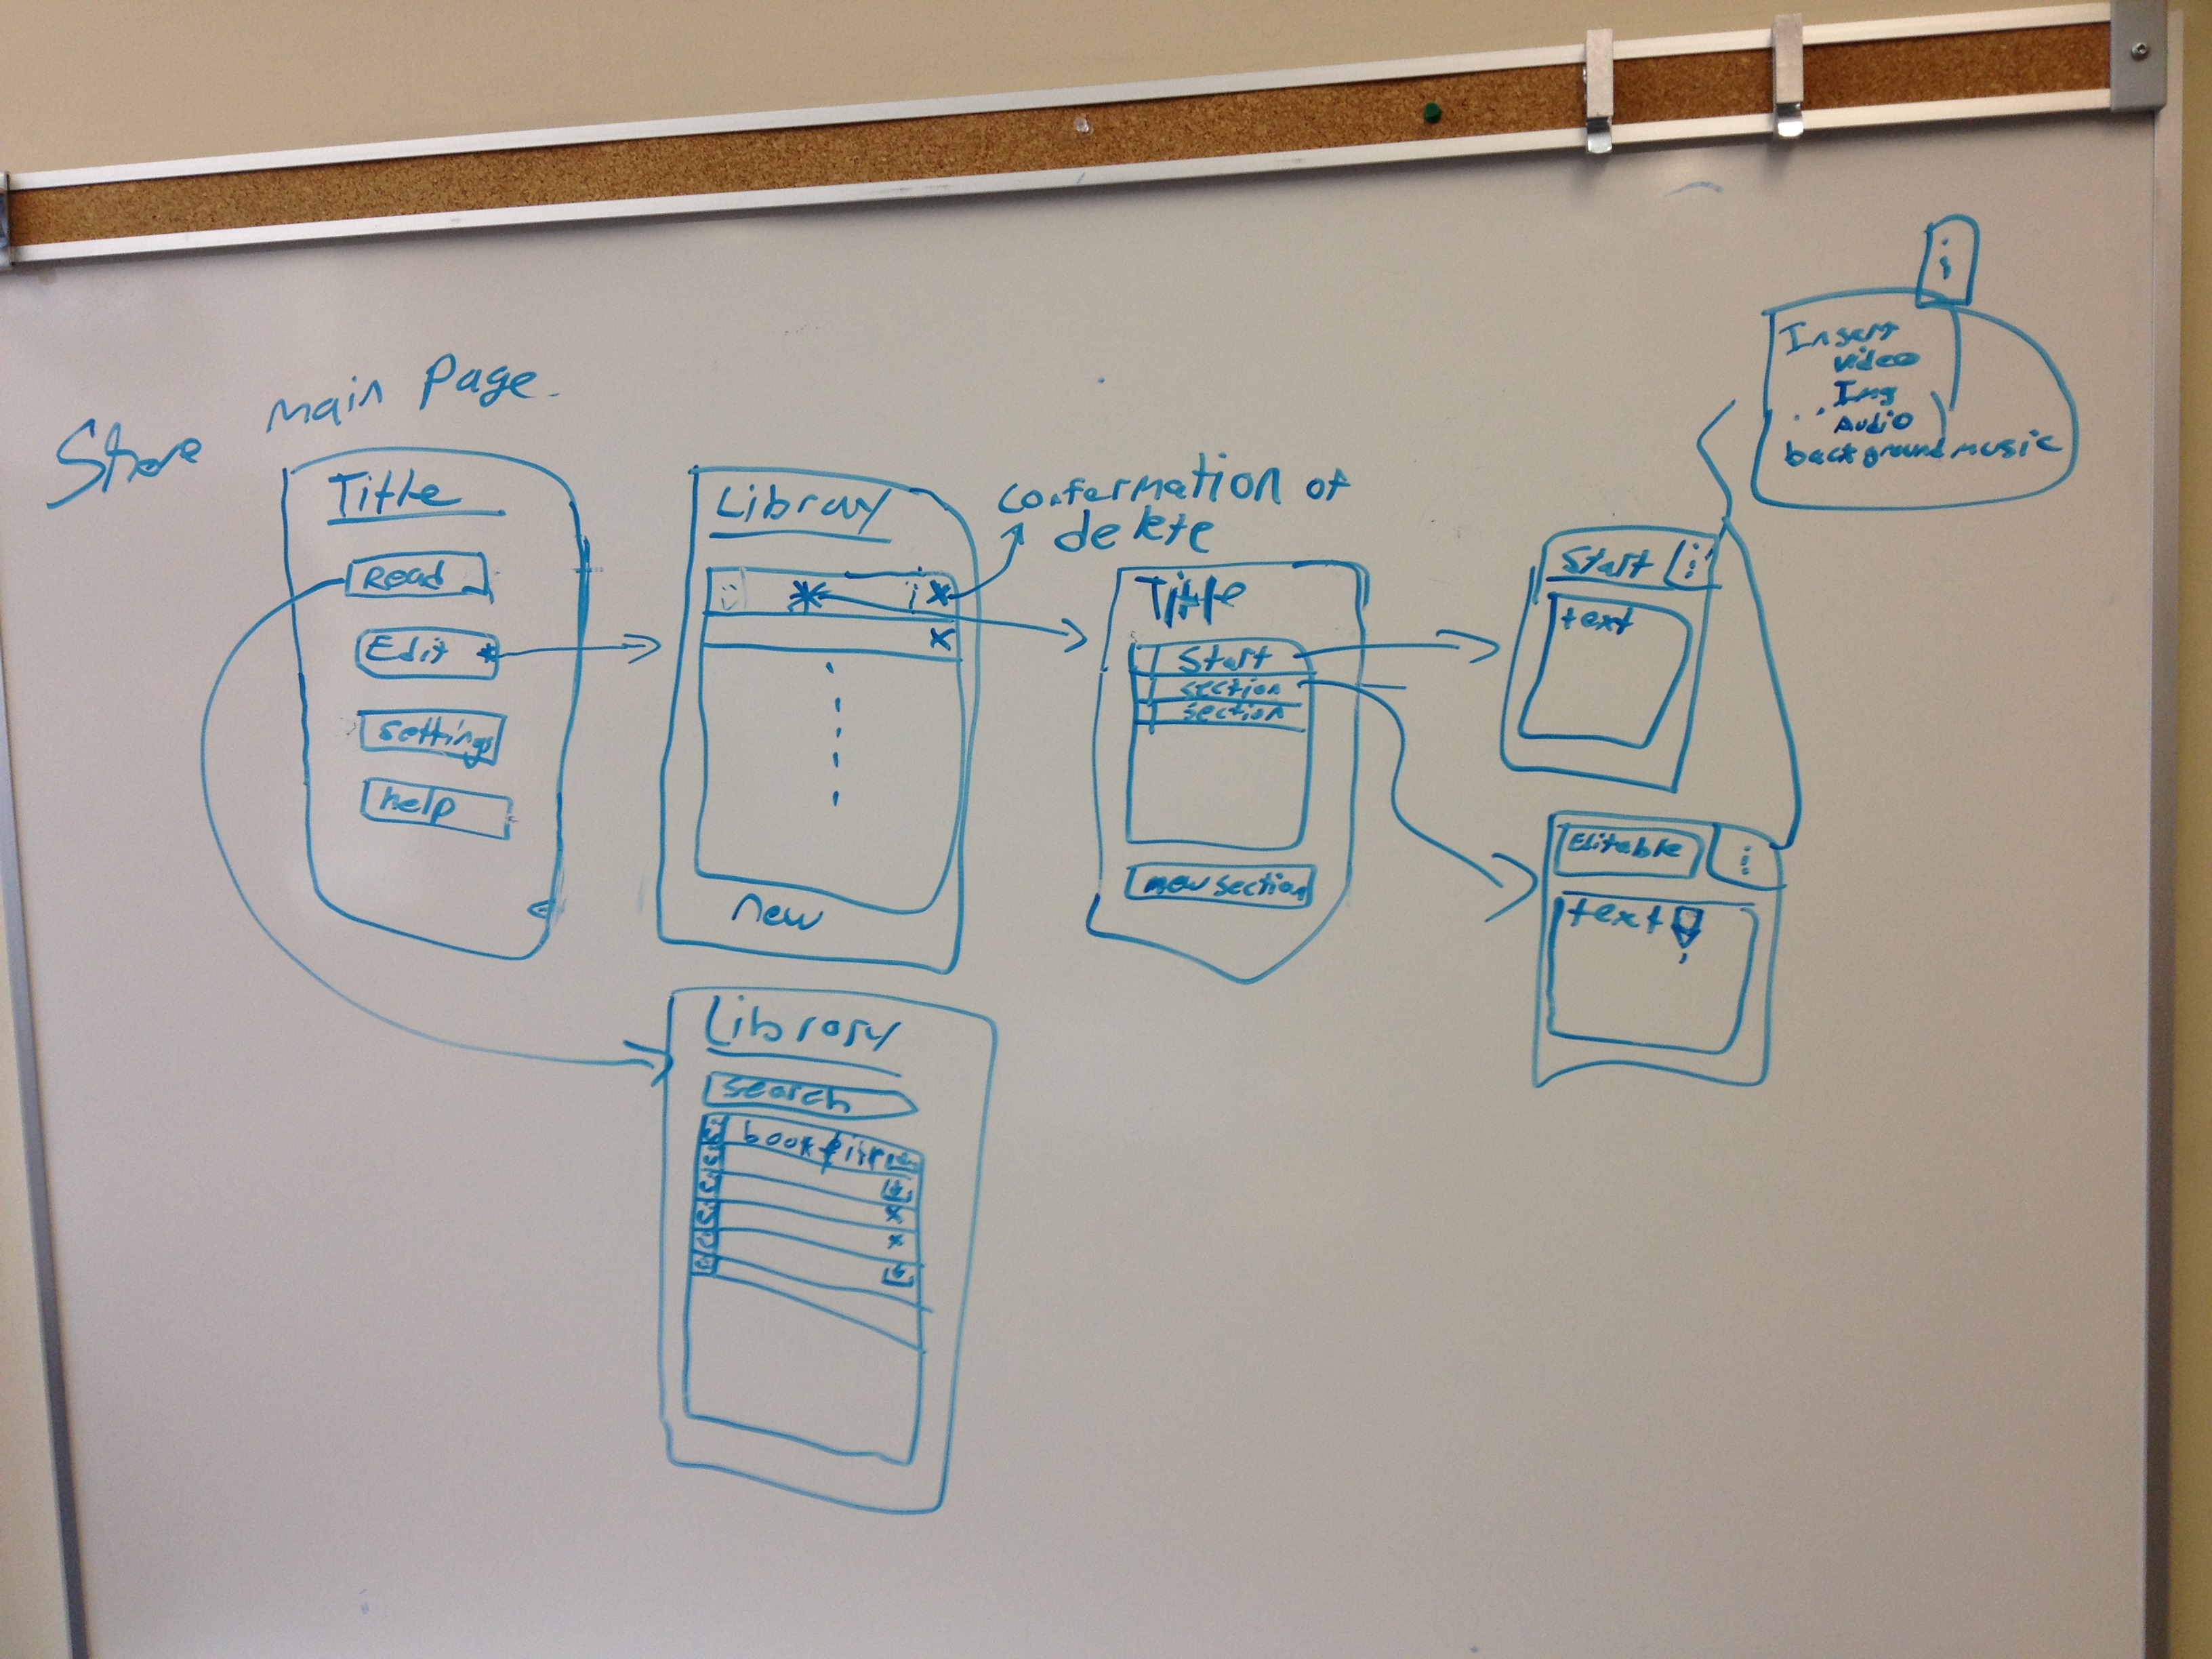 Store
main Page
Title
Read
Edit *
settings
help
Library
* i x
x
new
Conformation of
delete
Title
Start
section
section
new section
Start
text
Editable
text
Insert
video
Img
Audio
background music
Library
search
x
x